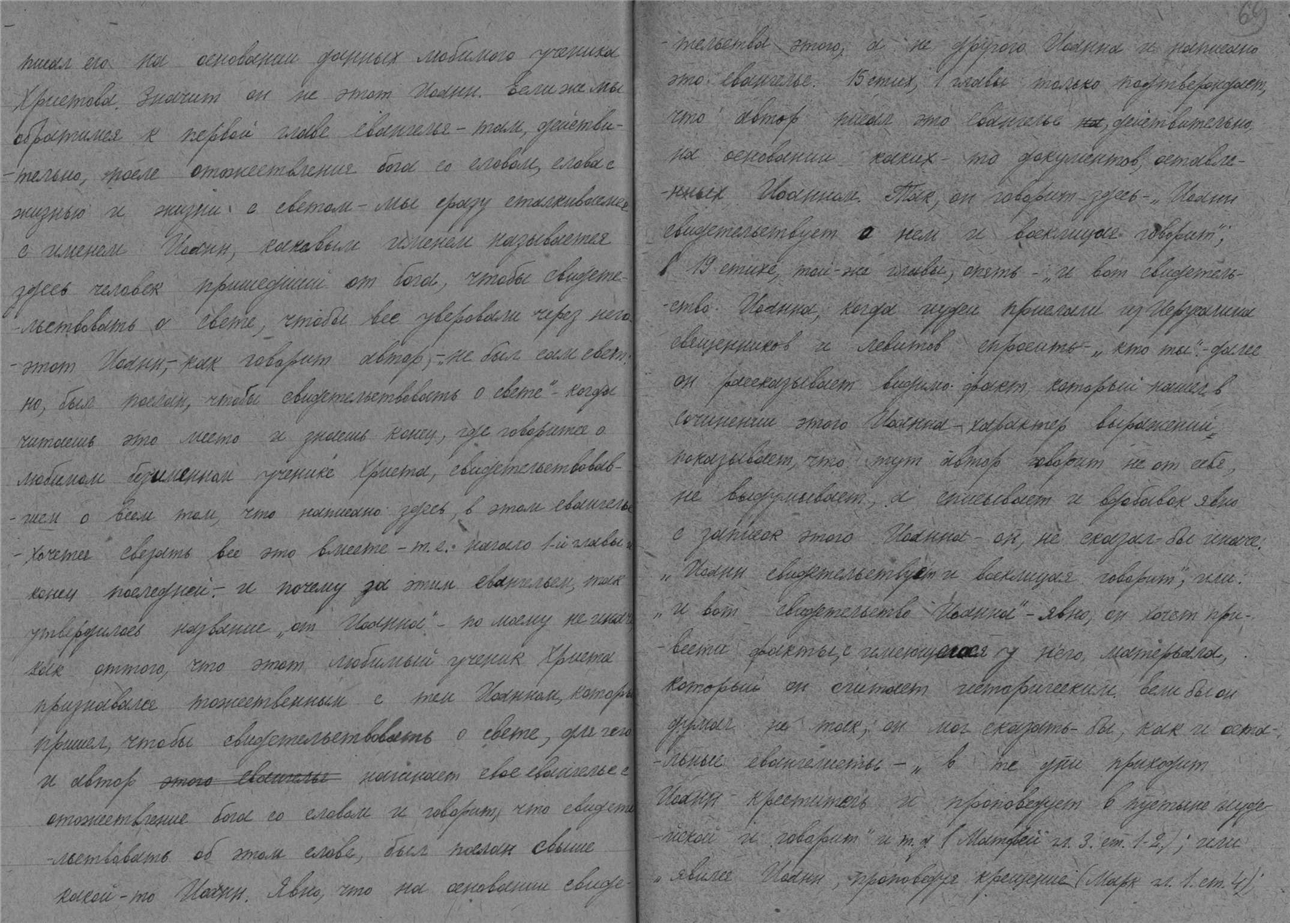 писал его на основании данных любимого ученика
Христова. Значит он не этот Иоанн. Если же мы
обратимся к первой главе евангелья – там, действи-
-тельно, после отожествления бога со словом, слова с
жизнью и жизни с светом – мы сразу сталкиваемся
с именем Иоанн, каковым именем называется
здесь человек пришедший от бога, чтобы свидете-
-льствовать о свете, чтобы все уверовали через него
-этот Иоанн, – как говорит автор, – не был сам свет,
но, был послан, чтобы свидетельствовать о свете" – когда
читаешь это место и знаешь конец, где говорится о
любимом безименном ученике Христа, свидетельствовав-
-шем о всем том, что написано здесь, в этом евангелье
-хочется связать все это вместе – т.е. начало 1-й главы и
конец последней – и почему за этим евангельем, так
утвердилось название „от Иоанна" – по моему не иначе
как оттого, что этот любимый ученик Христа
признавался тожественным с тем Иоанном, который
пришел, чтобы свидетельствовать о свете, для чего
и автор этого евангелья начинает свое евангелье с
отожествление бога со словом и говорит, что свидете
-льствовать об этом слове, был послан свыше
какой-то Иоанн. Явно, что на основании свиде-
69
-тельства этого, а не другого Иоанна и написано
это евангелье. 15 стих, 1 главы только подтверждает,
что автор писал это евангелье на, действительно,
на основании каких-то документов, оставле-
-нных Иоанном. Так, он говорит здесь – „Иоанн
свидетельствует о нем и восклицая говорит";
в 19 стихе, той-же главы, опять – „и вот свидетель-
-ство Иоанна, когда иудеи прислали из Иерусалима
священников и левитов спросить – „кто ты" – далее
он рассказывает видимо факт, который нашел в
сочинении этого Иоанна – характер выражений
показывает, что тут автор говорит не от себя,
не выдумывает, а списывает и вдобавок явно
с записок этого Иоанна – он, не сказал-бы иначе:
„Иоанн свидетельствует и восклицая говорит", или:
„и вот свидетельство Иоанна" – явно, он хочет при-
-вести факты, с имеющегося у него, матерьяла,
который он считает историческим. Если бы он
думал не так, он мог сказать-бы, как и оста-
-льные евангелисты – „в те дни приходит
Иоанн креститель и проповедует в пустыне иуде-
-йской и говорит" и т.д (Матфей гл. 3. ст. 1-2); или
„явился Иоанн, проповедуя крещение (Марк гл. 1. ст. 4);